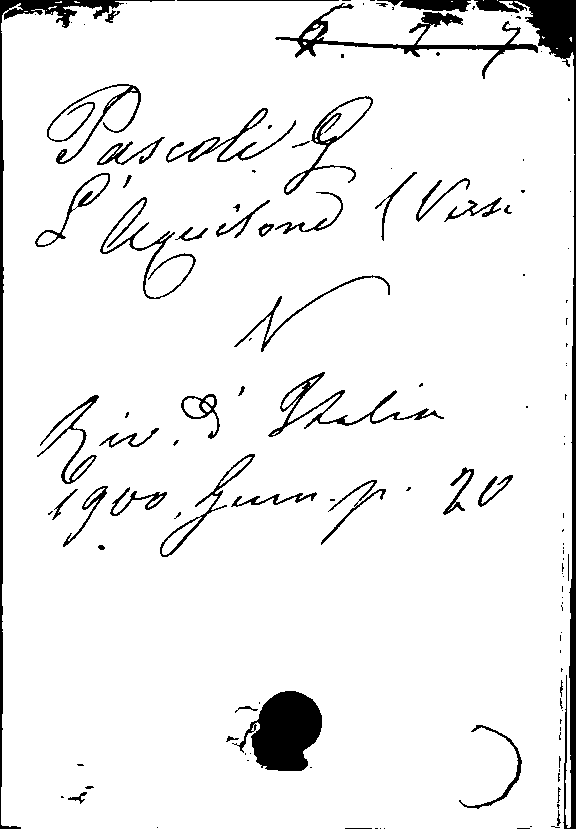 6. 2. 7
Pascoli G
L'Aquilone (Versi
N
Riv. d'Italia
1900, Genn. p. 20